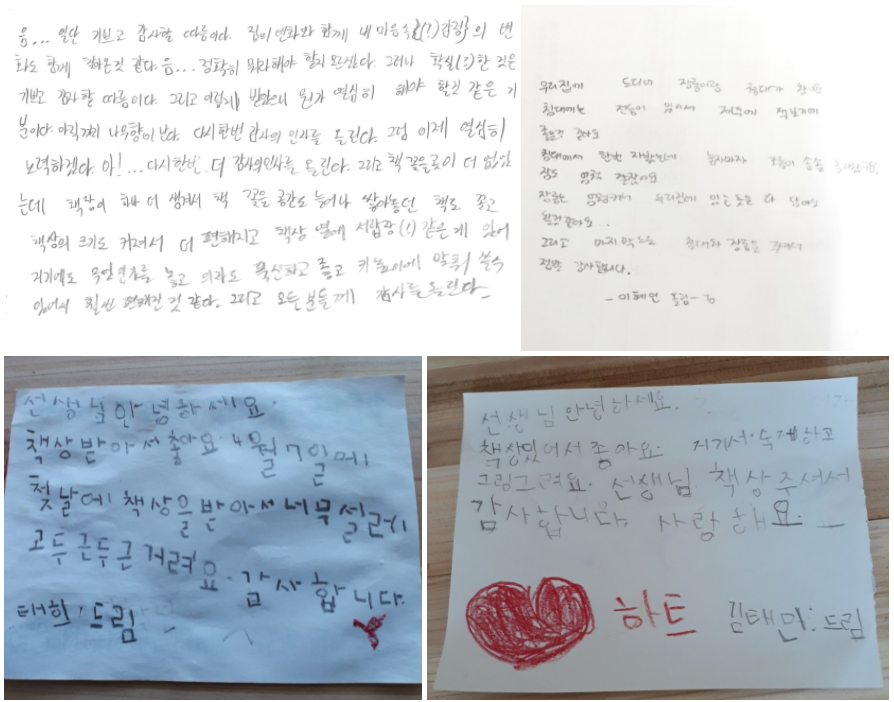 음... 일단 기쁘고 감사할 따름이다. 집의 변화와 함께 내 마음속{(?)감정}의 변
화도 함께 찾아온것 같다. 음... 정확히 뭐라해야 할지 모르겠다. 그러나 확실(?)한 것은
기쁘고 감사할 따름이다. 그리고 어렵게 받았으니 뭔가 열심히 해야 할것 같은 기
분이다. 아직까지 나무향이 난다. 다시한번 감사의 인사를 올린다. 그럼 이제 열심히
노력하겠다. 아!... 다시한번 더 감사의인사를 올린다. 그리고 책 꽂을곳이 더 없었
는데 책장이 하나 더 생겨서 책 꽂을 공간도 늘어나 쌓아놓던 책도 꽂고
책상의 크기도 커져서 더 편해지고 책상 옆에 서랍장(?) 같은게 있어
거기에도 물건을 놓고 의자도 푹신하고 좋고 키 높이에 맞춰 쓸수
있어서 훨씬 편해진 것 같다. 그리고 모든분들께 감사를 올린다
우리집에 드디어 장롱이랑 침대가 왔다
침대에는 전등이 있어서 저녁에 책보기에
좋은것 같아요
침대에서 한번 자봤는데 눕자마자 잠이 솔솔
잠도 엄청 잘잤어요
장롱는 엄청커서 우리집에 있는 옷을 다 담아도
될것 같아요..
그리고 마지막으로 침대와 장롱을 주셔서
정말 감사합니다.
- 이혜인 올림 -
선생님 안녕하세요.
책상 받아서 좋아요. 4월 7일에
첫날에 책상을 받아서 너무 설레
고 두근두근 거려요. 감사합니다.
태희. 드림
선생님 안녕하세요.
책상있어서 좋아요. 거기서 숙제하고
그림그려요. 선생님 책상 주셔서
감사합니다 사랑해요.
하트 김태민. 드림